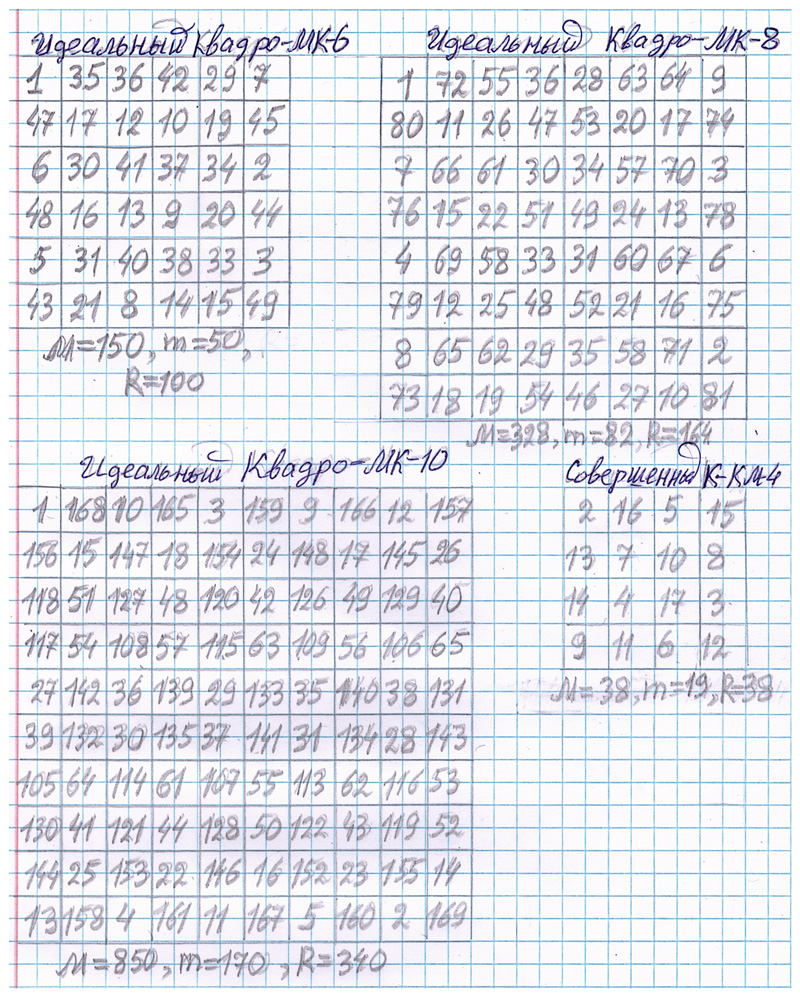 Идеальный Квадро-МК-6
1 35 36 42 29 7
47 17 12 10 19 45
6 30 41 37 34 2
48 16 13 9 20 44
5 31 40 38 33 3
43 21 8 14 15 49
М=150, m=50,
R=100
Идеальный Квадро-МК-8
1 72 55 36 28 63 64 9
80 11 26 47 53 20 17 74
7 66 61 30 34 57 70 3
76 15 22 51 49 24 13 78
4 69 58 33 31 60 67 6
79 12 25 48 52 21 16 75
8 65 62 29 35 56 71 2
73 18 19 54 46 27 10 81
М=328, m=82, R=164
Идеальный Квадро-МК-10
1 168 10 165 3 159 9 166 12 157
156 15 147 18 154 24 148 17 145 26
118 51 127 48 120 42 126 49 129 40
117 54 108 57 115 63 109 56 106 65
27 142 36 139 29 133 35 140 38 131
39 132 30 135 37 141 31 134 28 143
105 64 114 61 107 55 113 62 116 53
130 41 121 44 128 50 122 43 119 52
144 25 153 22 146 16 152 23 155 14
13 158 4 161 11 167 5 160 2 169
М=850, m=170, R=340
Совершенный К-КМ-4
2 16 5 15
13 7 10 8
14 4 17 3
9 11 6 12
М=38, m=19, R=38